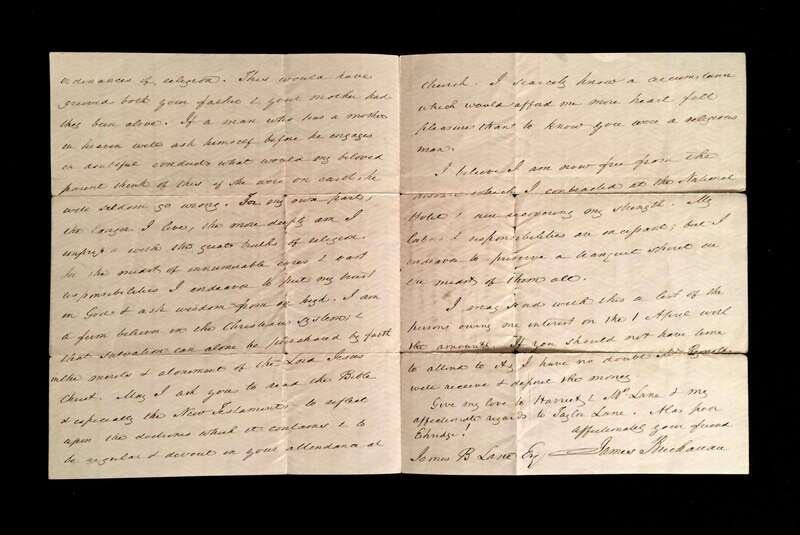 ordinances of religion. This would have
grieved both your father & your mother had
they been alive. If a man who has a mother
in heaven will ask himself before he engages
in doubtful conduct what would my beloved
parent think of this if she were on earth, he
will seldom go wrong. For my own part,
the longer I live, the more deeply am I
with the great truths of religion.
In the midst of innumerable cares & vast
responsibilities I endeavor to put my trust
in God & ask wisdom from on high. I am
a firm believer in the Christian system; &
that salvation can alone be purchased by faith
in the merits & atonement of the Lord Jesus
Christ. May I ask you to read the Bible
& especially the New Testament; to reflect
upon the doctrines which it contains & to
be regular & devout in your attendance at
church. I scarcely know a circumstance
which would afford me more heart felt
pleasure than to know you were a religious
man.
I believe I am now free from the
disease which I contracted at the National
Hotel & am recovering my strength. My
labors & responsibilities are incessant; but I
endeavor to preserve a tranquil spirit in
the midst of them all.
I may send with this a list of the
persons owing me interest on the 1 April with
the amounts. If you should not have time
to attend to it, I have no doubt Mr Reynolds
will receive & deposit the money
Give my love to Harriet & Mrs Lane & my
affectionate regards to Taylor Lane. Alas poor
Ethridge!
affectionately your friend
James B Lane Esq James Buchanan